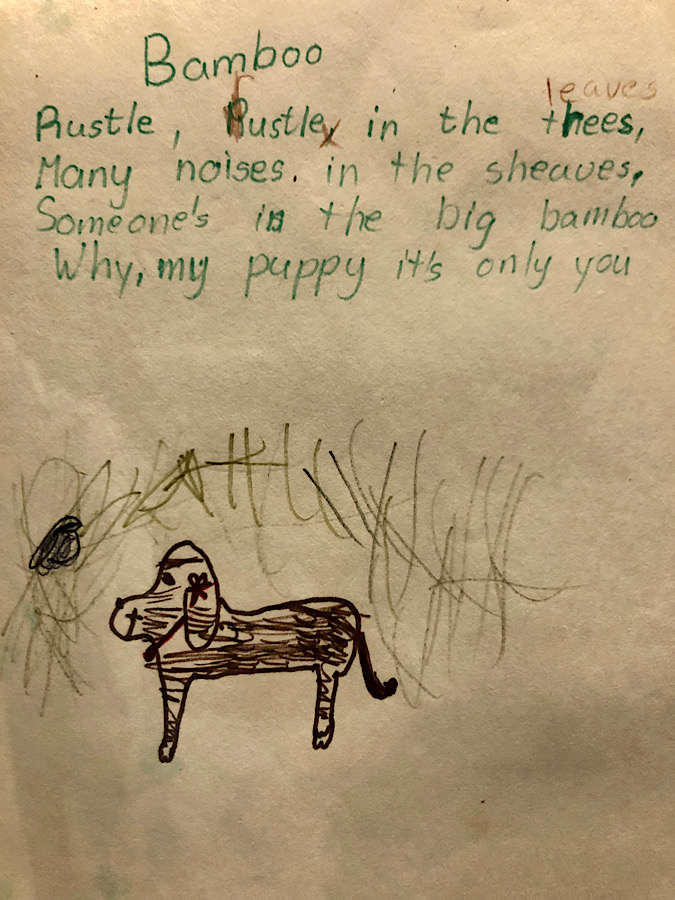 Bamboo
leaves
Rustle, rustle, in the thees,
Many noises. in the sheaves,
Someone's in the big bamboo
Why, my puppy it's only you